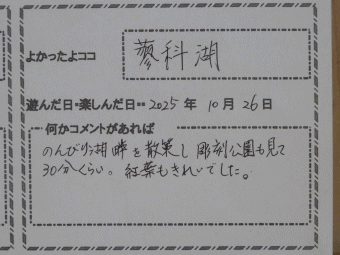 よかったよココ 蓼科湖
遊んだ日・楽しんだ日・・ 2025 年 10 月 26 日
何かコメントがあれば
のんびり湖畔を散策し 彫刻公園も見て
30分くらい。 紅葉もきれいでした。